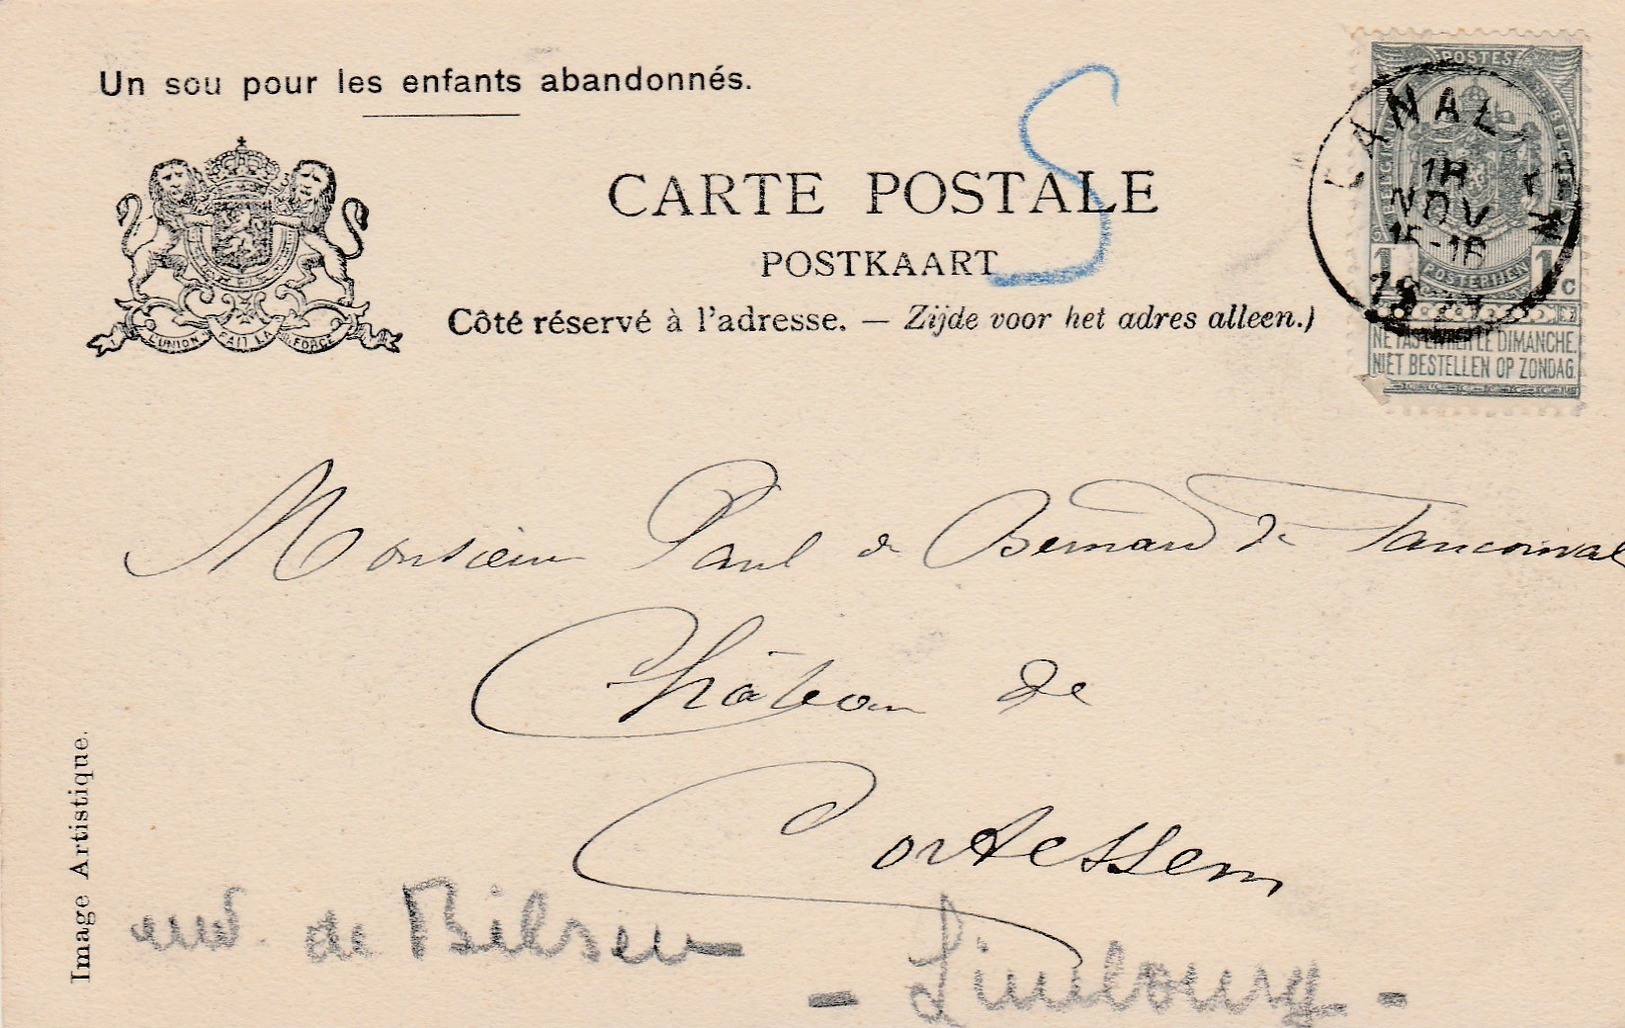 Un sou pour les enfants abandonnés.
CARTE POSTALE
POSTKAART
Côté réservé à l'adresse. — Zijde voor het adres alleen.)
L'UNION FAIT LA FORCE
POSTES
POSTERIJEN
1 1
C
NE PAS LIVRER LE DIMANCHE.
NIET BESTELLEN OP ZONDAG.
18
NOV
S
Monsieur Paul de Bernard de Fauconval
Château de
Cortessem
env. de Bilsen —
- Limbourg -
Image Artistique.